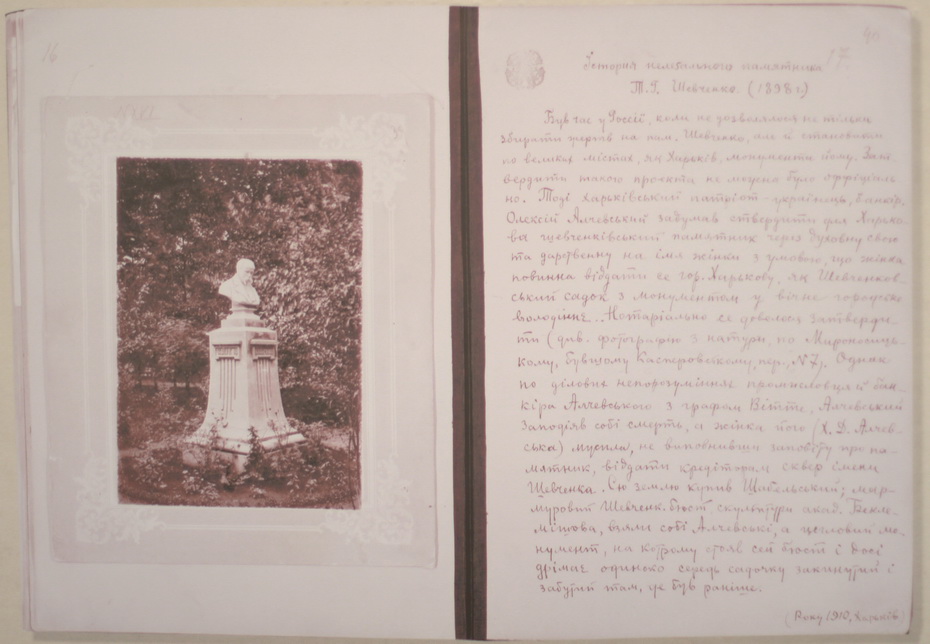 16
17.
Історія нелегального памятника
Т. Г. Шевченко (1898 г.)
Був час у Россіі, коли не дозволялося не тільки
збірати жертв на пам. Шевченко, але й становити
по великих містах, як Харьків, монументи йому. Зат-
вердити такого проєкти не можна було оффіціяль
но. Тоді харьківський патріот-українець, банкір,
Олексій Алчевський задумав ствердити для Харько-
ва шевченківський памятник через духовну свою
та дарственну на імя жінки з умовою, що жінка
повинна віддати се гор. Харькову, як Шевченков-
ський садок з монументом у вічне городське
володіннє. Нотаріально се довелося затверди-
ти (див. фотографію з натури, по Мироносиць-
кому, бувшому Касперовському, пер., N 7). Однак
по ділових непорозуміннях промисловця й бан-
кіра Алчевського з графом Вітте, Алчевський
заподіяв собі смерть, а жінка його (Х. Д. Алчев-
ська) мусила, не виповнивши заповіту про па-
мятник, віддати кредіторам сквер імени
Шевченка. Сю землю купив Шабельський; мар-
муровий Шевченк. бюст, скульптури акад. Бекле-
мішова, взяли собі Алчевські, а цегловий мо-
нумент, на котрому стояв сей бюст і досі
дрімає одиноко серед садочку закинутий і
забутий там, де був раніше.
(Року 1910, Харьків)